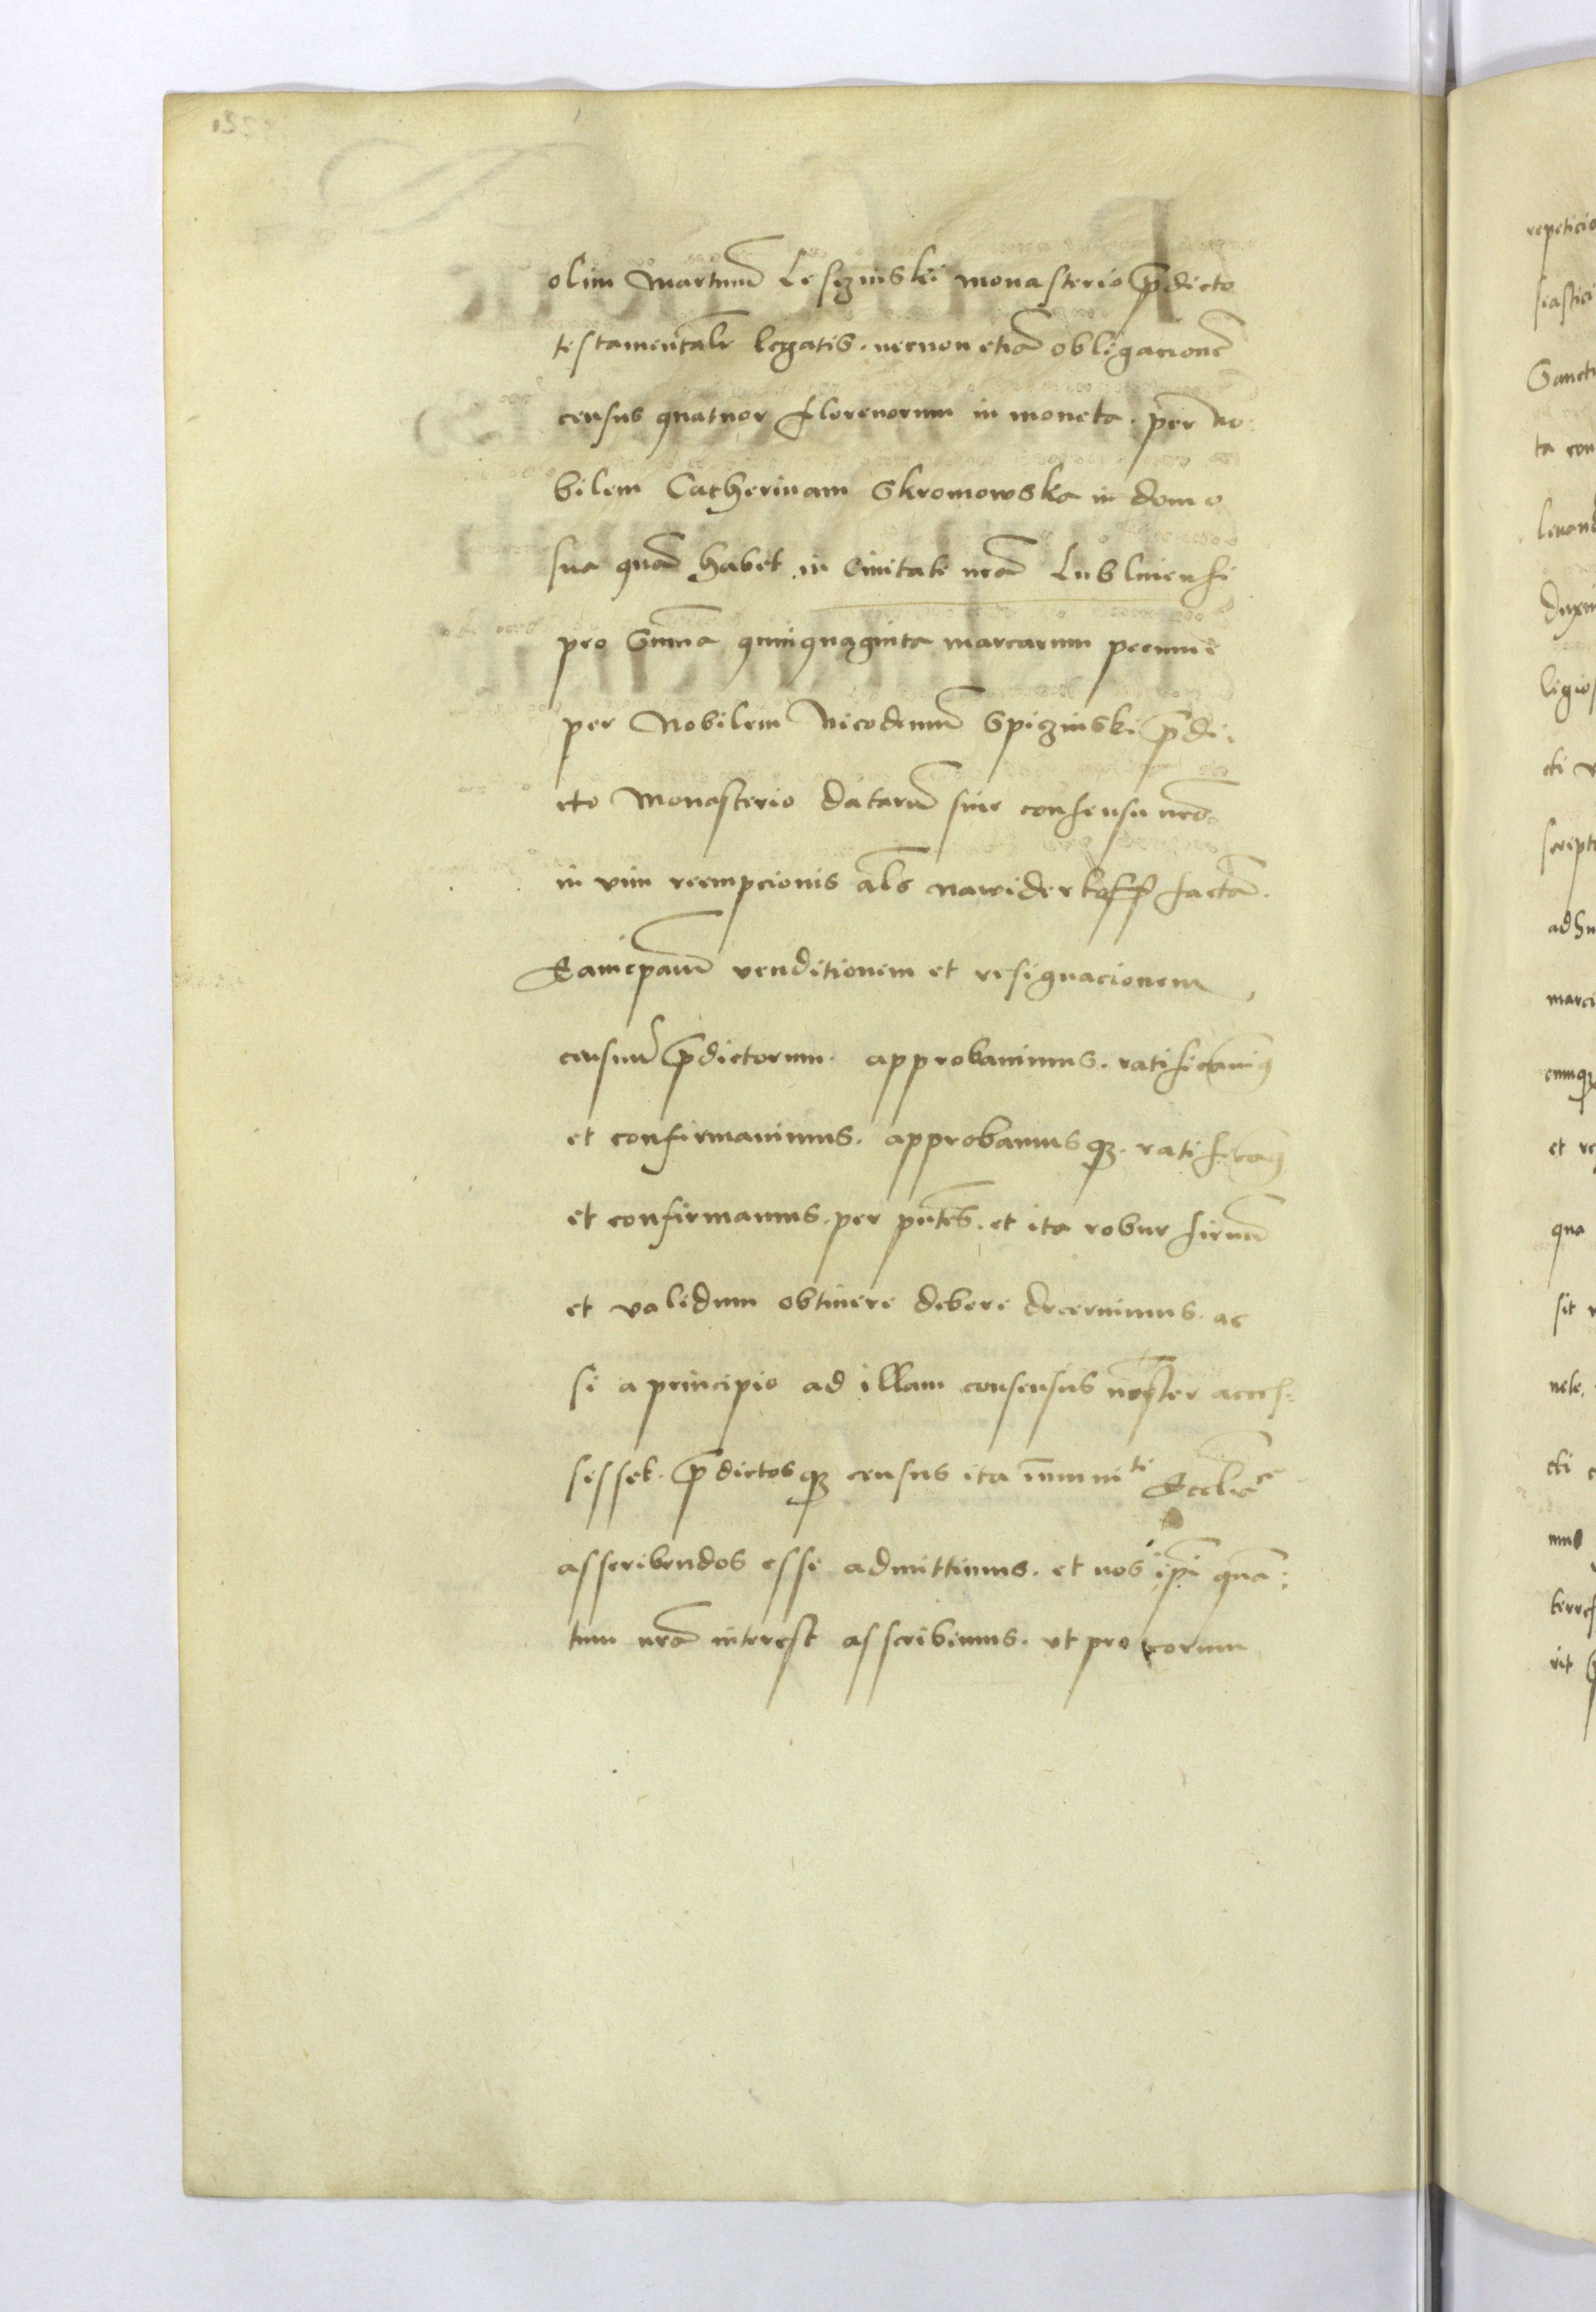 olim Martinū Lesczinski monasterio p̄dicto
testamentalr̄ legatis. necnon etiā obligacionē
census quatuor florenorum in moneta. per no:
bilem Catherinam Skromowska in domo
sua quā habet in Ciuitate nrā Lublinensi
pro Summa quinquaginta marcarum pecunie
per Nobilem Nicodemū Spiczinski p̄di:
cto Monasterio datarū sine consensu nrō
in vim reempcionis als̄ nawiderkoff factā.
venditionem et resignacionem
censuū p̄dictorum. approbauimus. ratificauimꝰ
et confirmauimus. approbamusqꝫ. ratificamꝰ
et confirmamus. per pn̄tes. et ita robur firmū
et validum obtinere debere decernimus. ac
si a principio ad illam consensus noster accef=
sisset. p̄dictosqꝫ census ita īmunitⁱ Eccliē
asscribendos esse admittimus. et nos ip̄i quā:
tum nrā interest asscribimus. vt pro eorum
repeticio
siastici
Sancti
ta con
leuand
duxim
ligios
cti v
script
adhu
marci
cumqꝫ
et re
qua
sit
nete.
cti c
mno
terres
rit